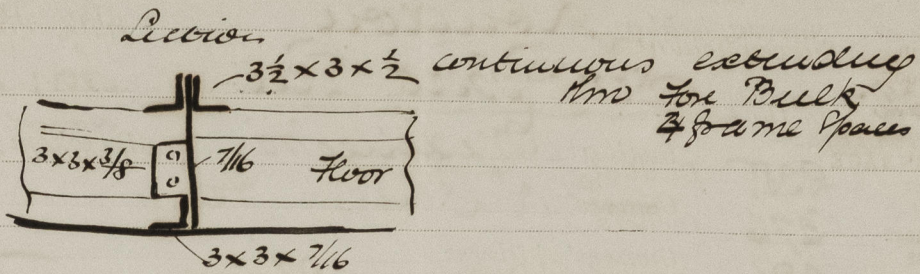 Section
3½ × 3 × ½ continuous extending
thro Fore Bulk
4 frame Spaces
3×3×3/8
7/16
Floor
3×3×7/16